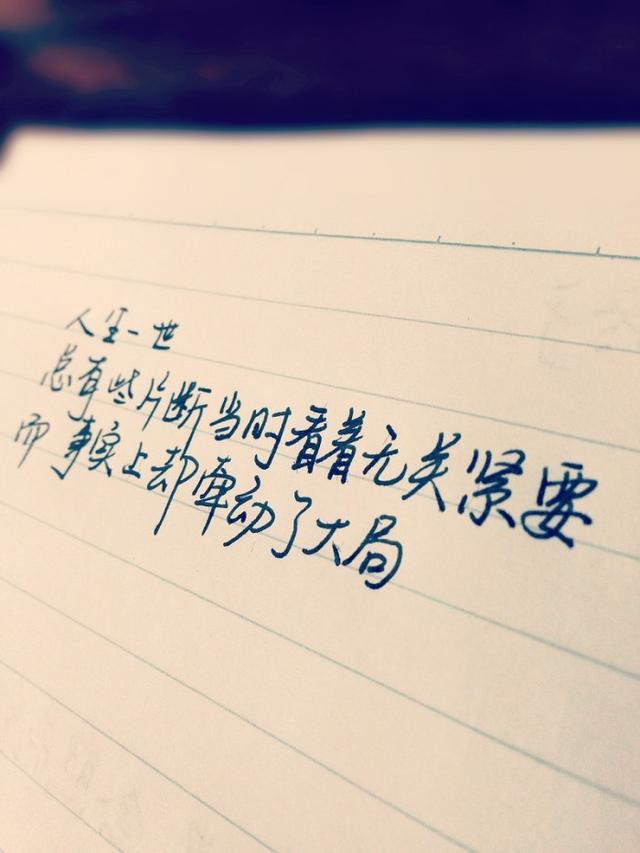 人生一世
总有些片断当时看着无关紧要
而事实上却牵动了大局